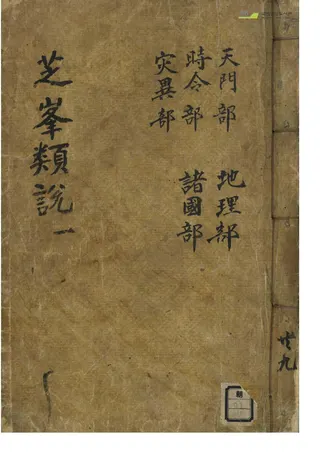 天門部 地理部
時令部 諸國部
災異部
芝峯類說 一